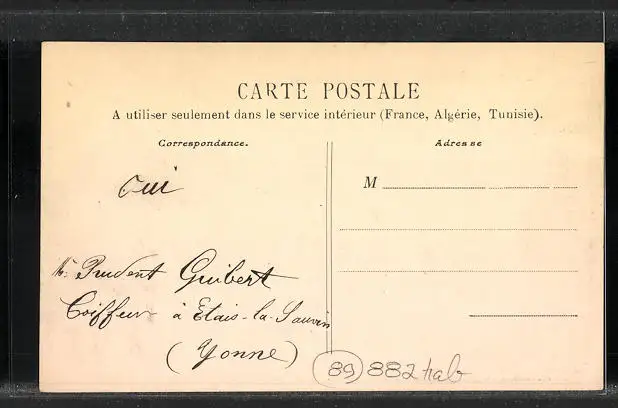 CARTE POSTALE
A utiliser seulement dans le service intérieur (France, Algérie, Tunisie).
Correspondance.
Adresse
M
oui
Mr. Prudent Guibert
Coiffeur à Etais-la-Sauvin
(Yonne)
(89) 882 hab